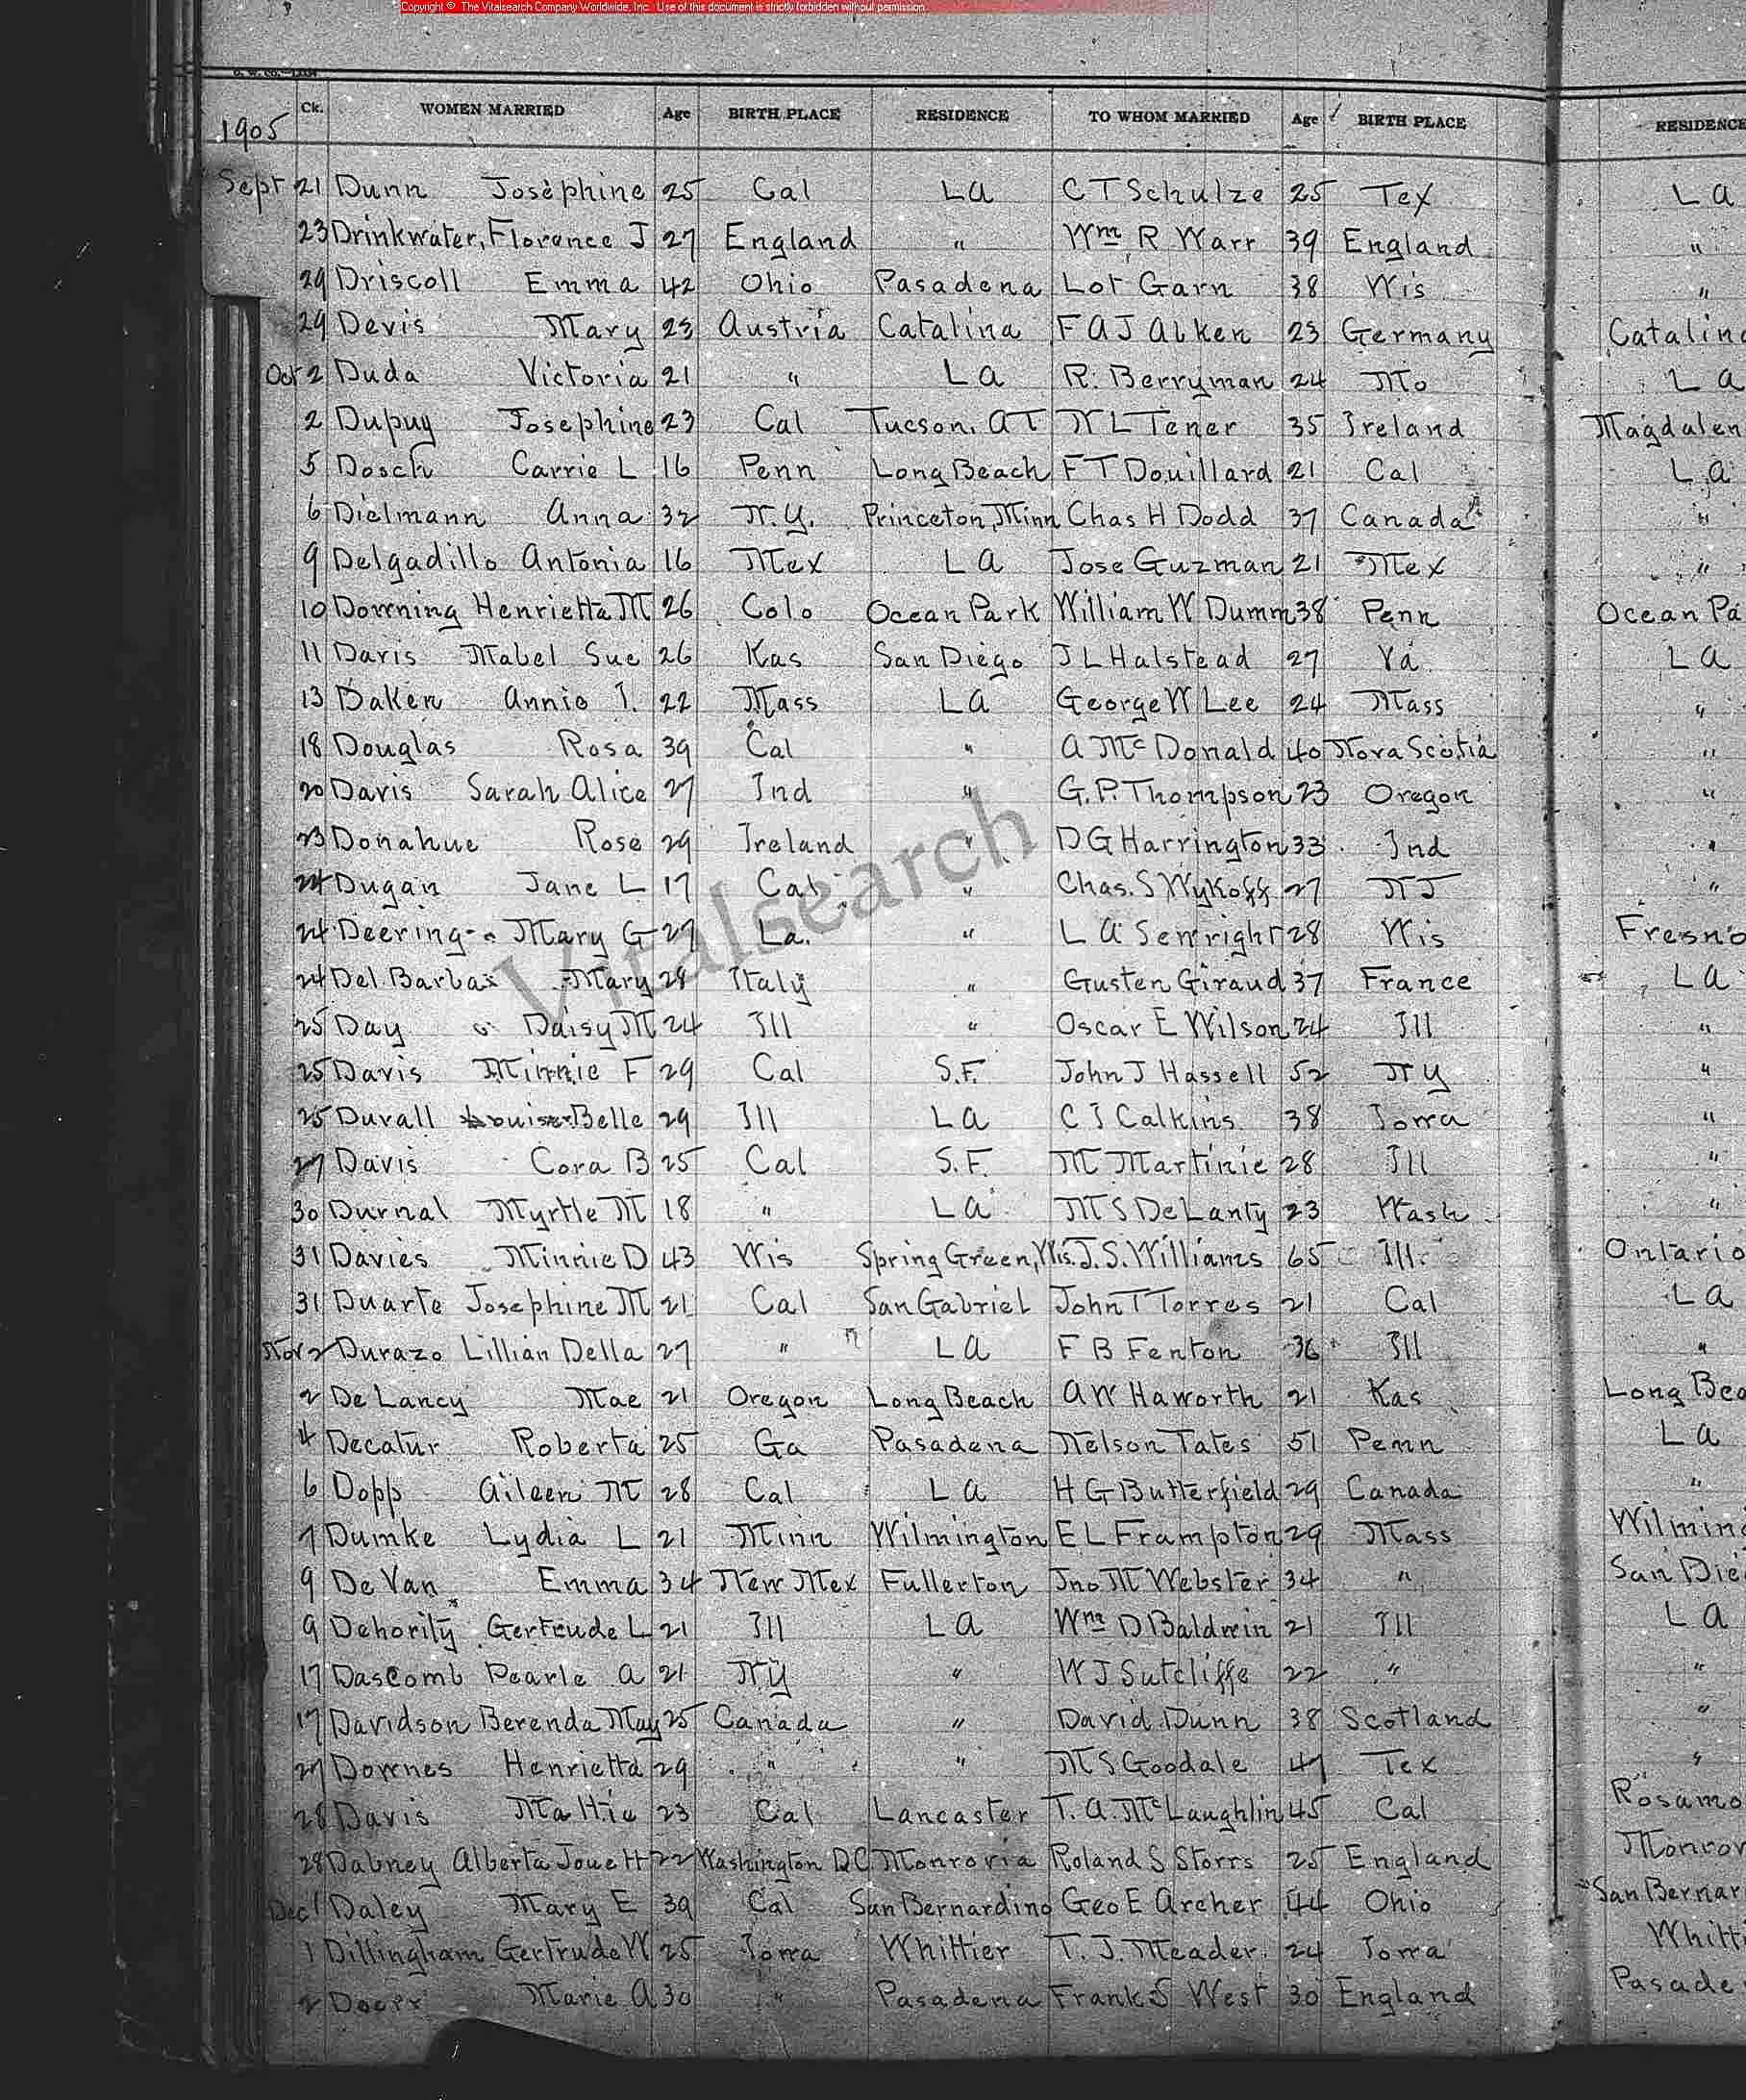 Copyright © The Vitalsearch Company Worldwide, Inc. Use of this document is strictly forbidden without permission.
Ck. WOMEN MARRIED Age BIRTH PLACE RESIDENCE TO WHOM MARRIED Age BIRTH PLACE RESIDENCE
1905
Sept 21 Dunn Josephine 25 Cal LA C T Schulze 25 Tex LA
23 Drinkwater, Florence J 27 England " Wm R Warr 39 England "
29 Driscoll Emma 42 Ohio Pasadena Lot Garn 38 Wis "
29 Devis Mary 23 Austria Catalina F A J Aiken 23 Germany Catalina
Oct 2 Duda Victoria 21 " LA R. Berryman 24 Mo LA
2 Dupuy Josephine 23 Cal Tucson. A T W L Tener 35 Ireland Magdalen
5 Dosch Carrie L 16 Penn Long Beach F T Douillard 21 Cal LA
6 Dielmann Anna 32 N.Y. Princeton, Minn Chas H Dodd 37 Canada "
9 Delgadillo Antonia 16 Mex LA Jose Guzman 21 Mex "
10 Downing Henrietta M 26 Colo Ocean Park William W Dumm 38 Penn Ocean Pa
11 Davis Mabel Sue 26 Kas San Diego J L Halstead 27 Va LA
13 Daken Annie I. 22 Mass LA George W Lee 24 Mass "
18 Douglas Rosa 39 Cal " A McDonald 40 Nova Scotia "
20 Davis Sarah Alice 27 Ind " G. P. Thompson 23 Oregon "
23 Donahue Rose 29 Ireland " D G Harrington 33 Ind "
24 Dugan Jane L 17 Cal " Chas. S Wykoff 27 N J "
24 Deering Mary G 27 La. " L A Senright 28 Wis Fresno
24 Del Barba Mary 28 Italy " Gusten Giraud 37 France LA
25 Day Daisy M 24 Ill " Oscar E Wilson 24 Ill "
25 Davis Minnie F 29 Cal S.F. John J Hassell 52 N Y "
25 Duvall Louise Belle 29 Ill LA C J Calkins 38 Iowa "
27 Davis Cora B 25 Cal S.F. M Martinie 28 Ill "
30 Durnal Myrtle M 18 " LA M S DeLanty 23 Wash "
31 Davies Minnie D 43 Wis Spring Green, Wis. J. S. Williams 65 Ill. Ontario
31 Duarte Josephine M 21 Cal San Gabriel John T Torres 21 Cal LA
Nov 2 Durazo Lillian Della 27 " LA F B Fenton 36 Ill "
2 De Lancy Mae 21 Oregon Long Beach A W Haworth 21 Kas Long Bea
4 Decatur Roberta 25 Ga Pasadena Nelson Tates 51 Penn LA
6 Dopp Aileen M 28 Cal LA H G Butterfield 29 Canada "
7 Dumke Lydia L 21 Minn Wilmington E L Frampton 29 Mass Wilming
9 De Van Emma 34 New Mex Fullerton Jno M Webster 34 " San Die
9 Dehority Gertrude L 21 Ill LA Wm D Baldwin 21 Ill LA
17 Dascomb Pearle A 21 N Y " W J Sutcliffe 22 " "
17 Davidson Berenda May 25 Canada " David Dunn 38 Scotland "
27 Downes Henrietta 29 " " M S Goodale 47 Tex "
28 Davis Mattie 23 Cal Lancaster T. A. McLaughlin 45 Cal Rosamo
28 Dabney Alberta Jouett 22 Washington DC Monrovia Roland S Storrs 25 England Monrov
Dec 1 Daley Mary E 39 Cal San Bernardino Geo E Archer 44 Ohio San Bernar
1 Dillingham Gertrude W 25 Iowa Whittier T. J. Meader 24 Iowa Whitti
2 Marie A 30 " Pasadena Frank S West 30 England Pasade
Vitalsearch